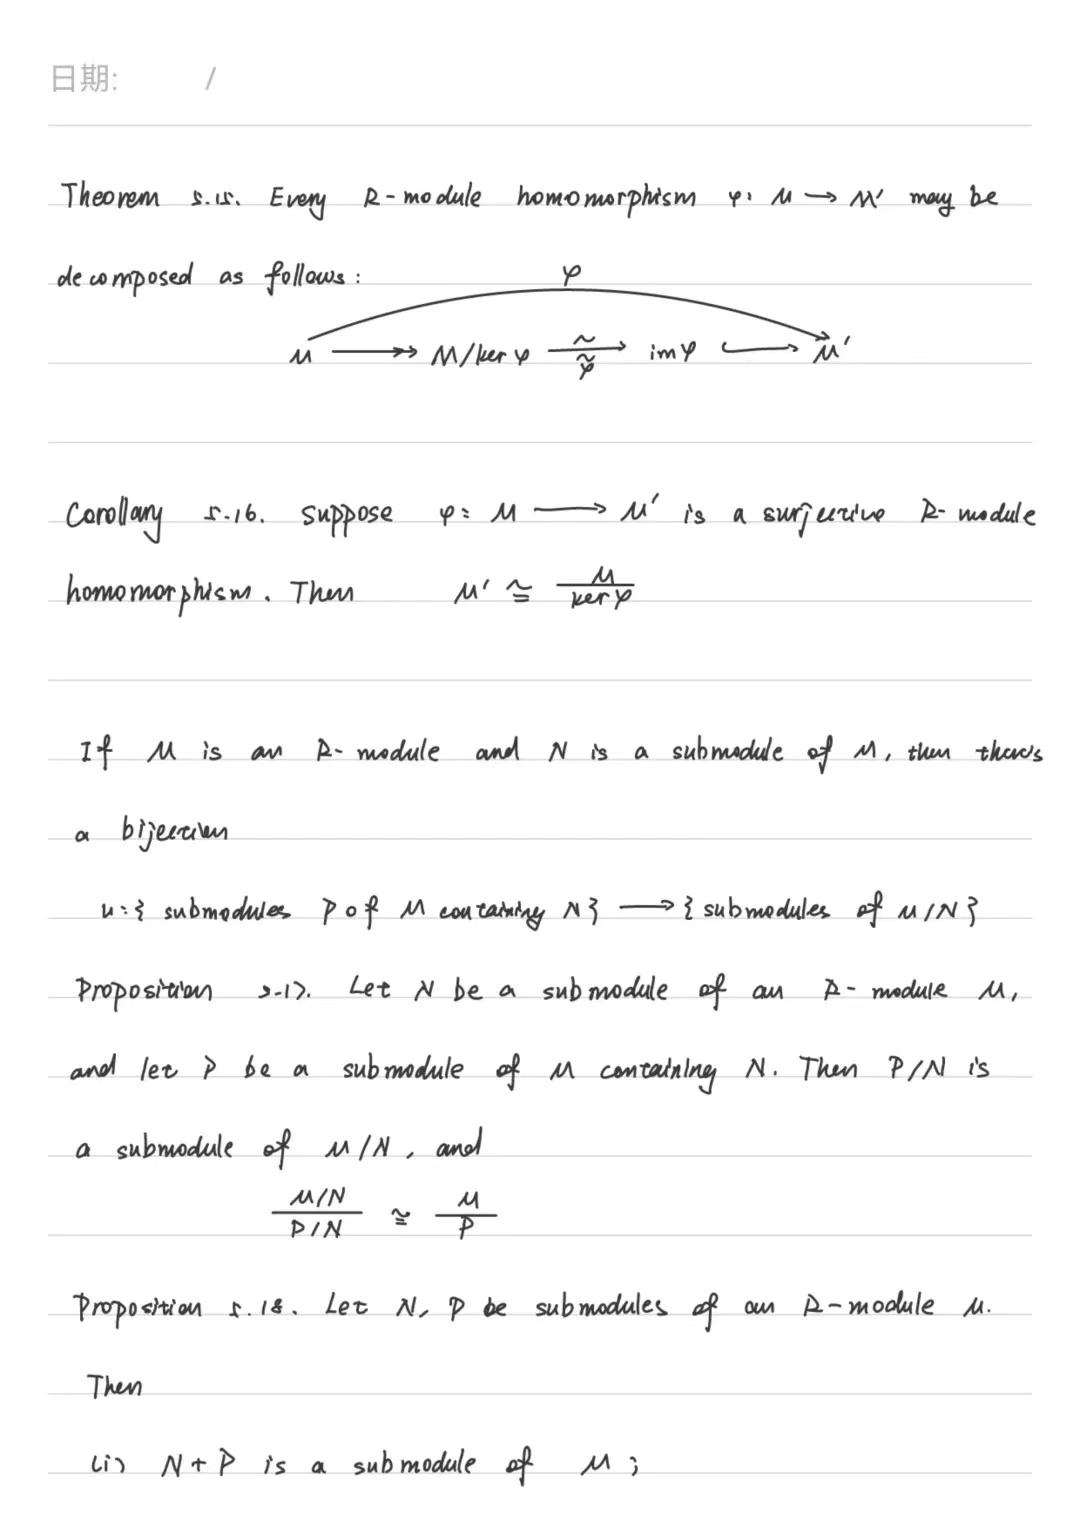 日期: /
Theorem 5.15. Every R-module homomorphism φ: M → M' may be
decomposed as follows:
φ
M ↠ M/ker φ ⥲ im φ ↪ M'
φ̃
Corollary 5.16. suppose φ: M → M' is a surjective R-module
homomorphism. Then M' ≅ M/ker φ
If M is an R-module and N is a submodule of M, then there's
a bijection
u:{ submodules P of M containing N} → { submodules of M/N }
Proposition 5.17. Let N be a submodule of an R-module M,
and let P be a submodule of M containing N. Then P/N is
a submodule of M/N, and
(M/N)/(P/N) ≅ M/P
Proposition 5.18. Let N, P be submodules of an R-module M.
Then
(i) N+P is a submodule of M;